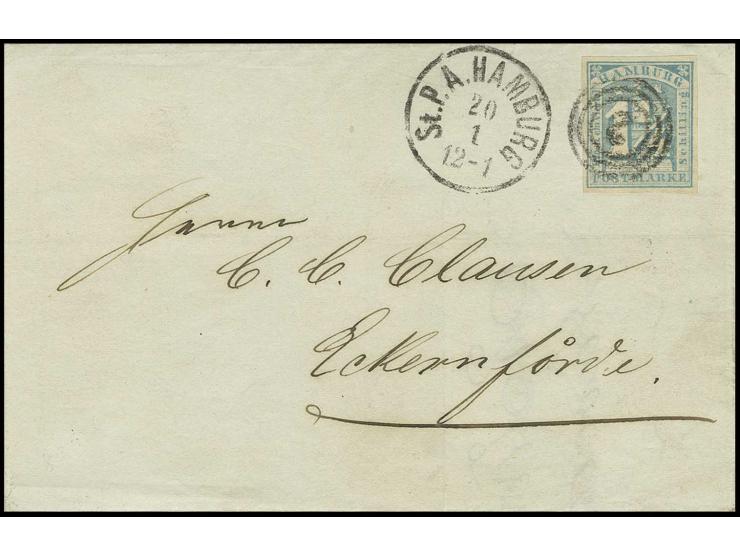 St.P.A.HAMBURG
20
1
12-1
HAMBURG
Schilling
POSTMARKE
Herrn
C. C. Clausen
Eckernförde.